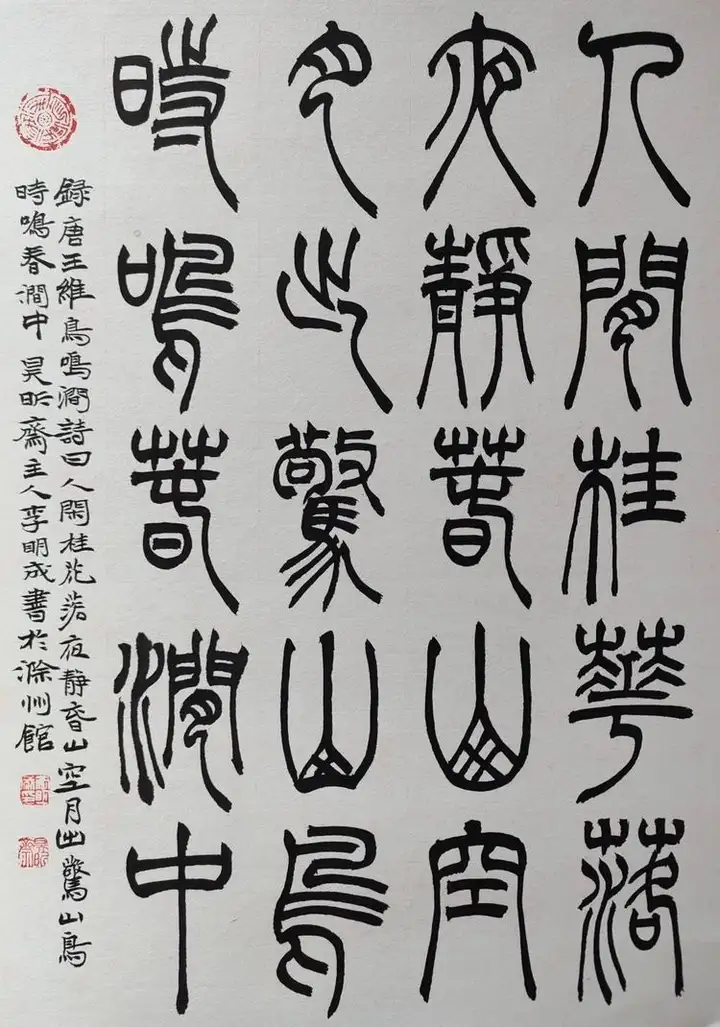 人閒桂華落
夜靜春山空
月出驚山鳥
時鳴春澗中
録唐王維鳥鳴澗詩曰人閑桂花落夜靜春山空月出驚山鳥
時鳴春澗中 昊昕齋主人李明成書於滁州館